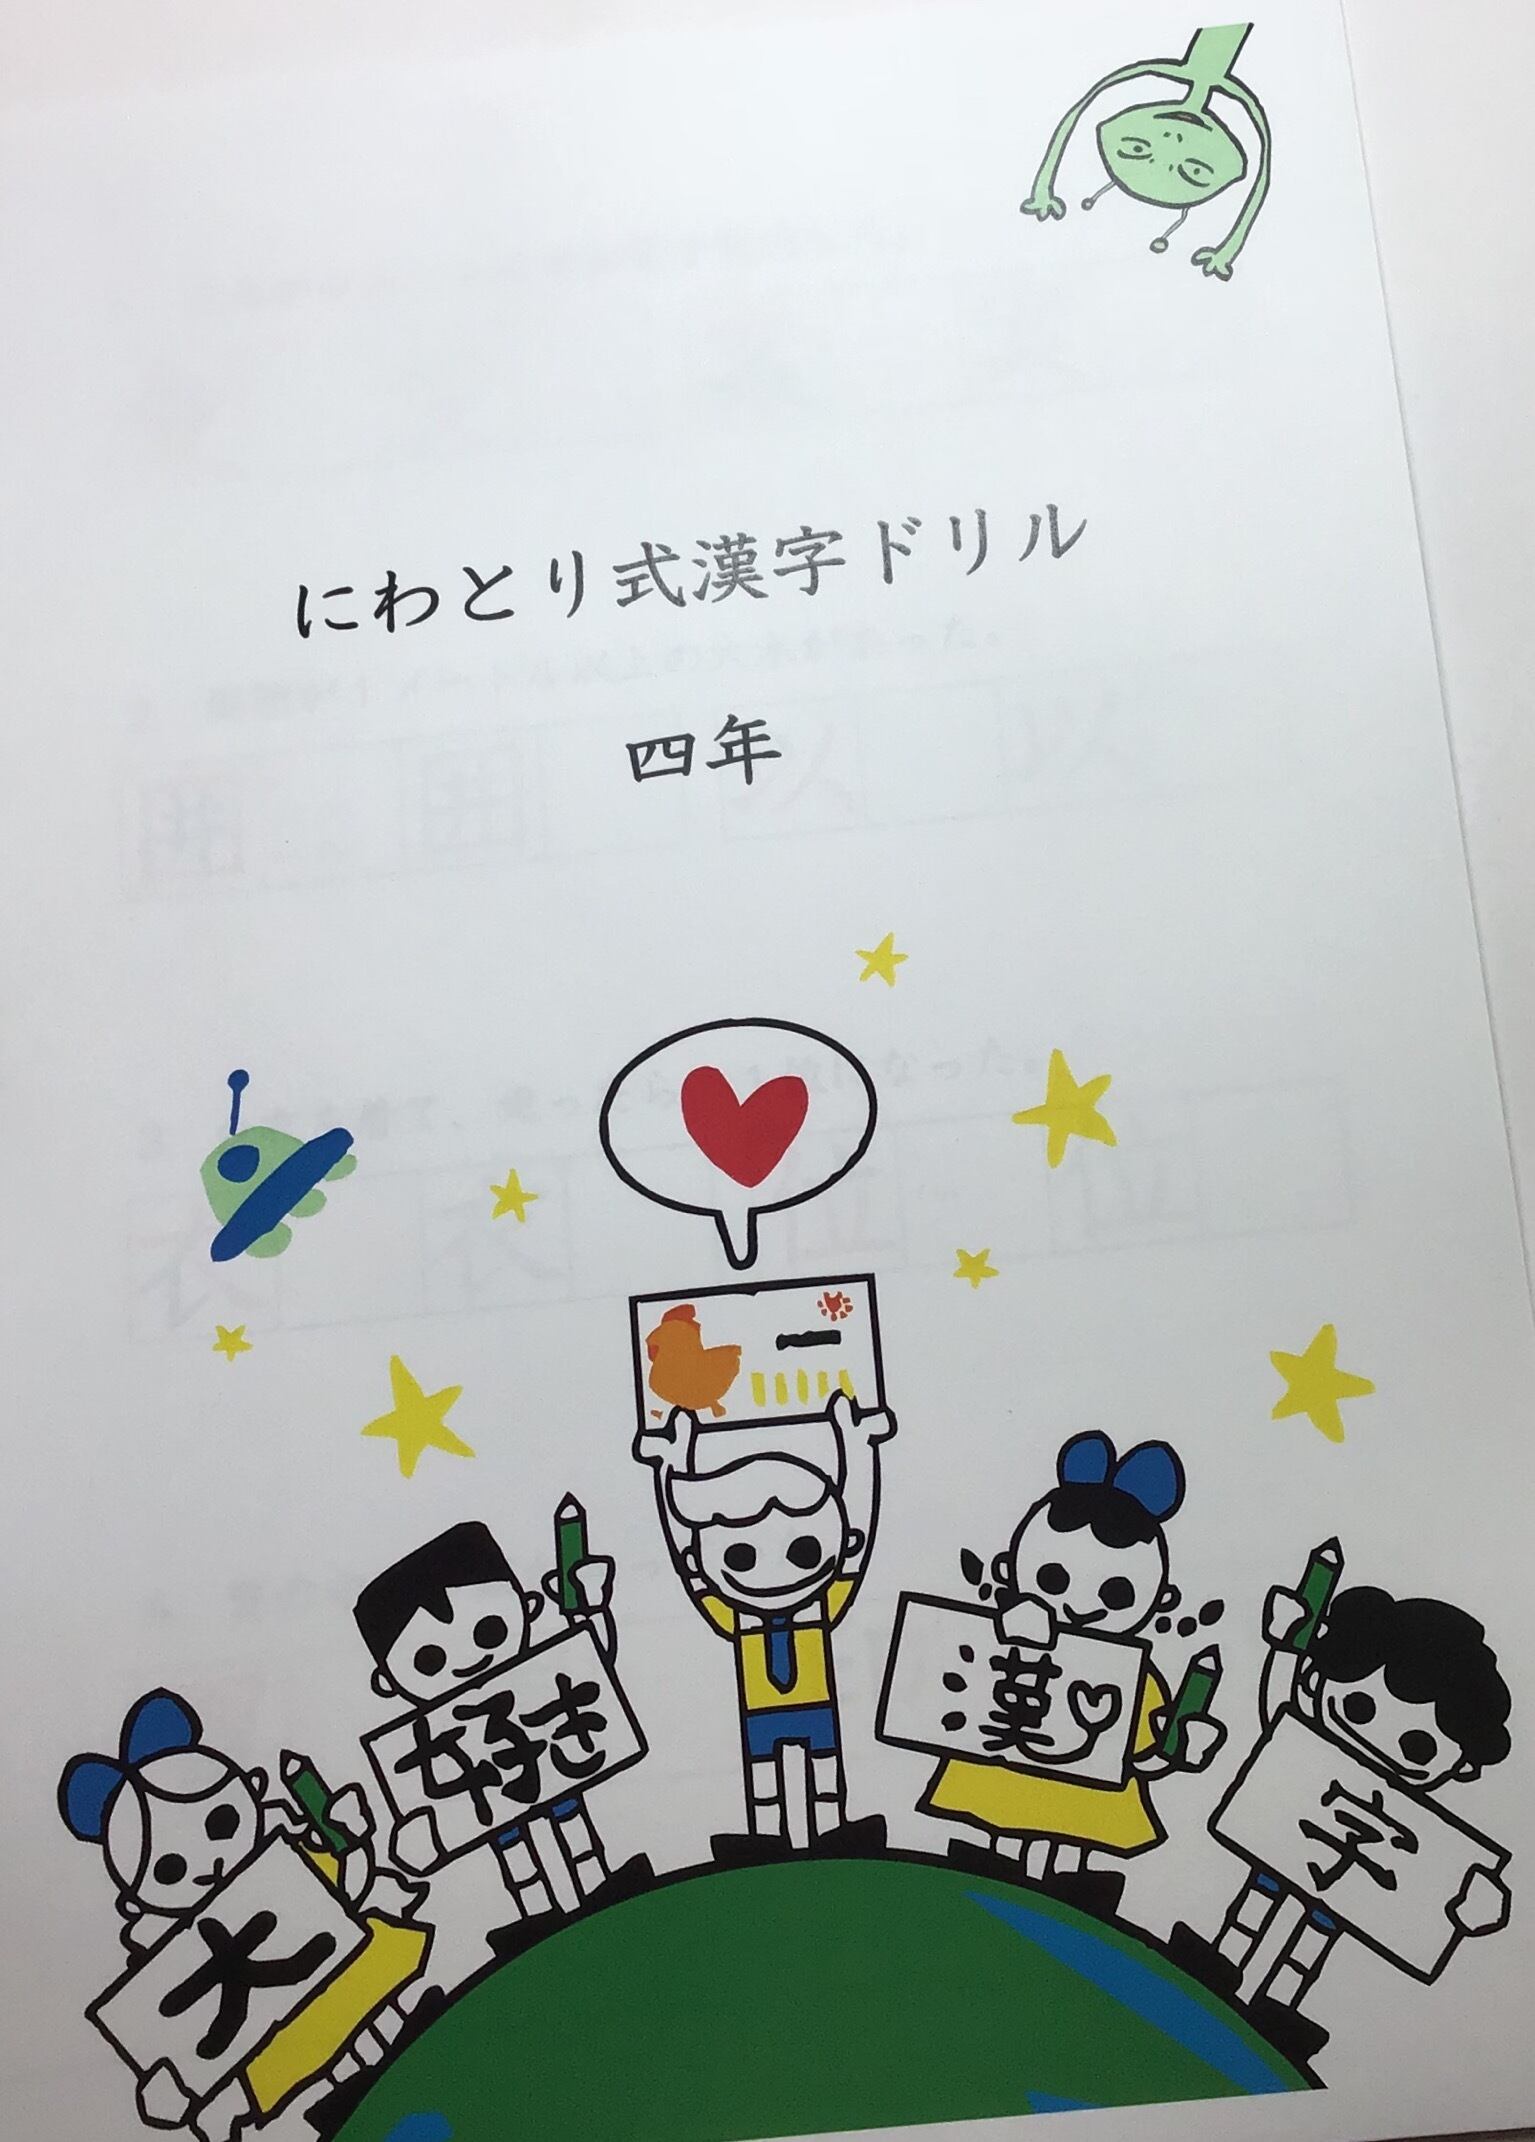 にわとり式漢字ドリル
四年
大
好き
漢
字